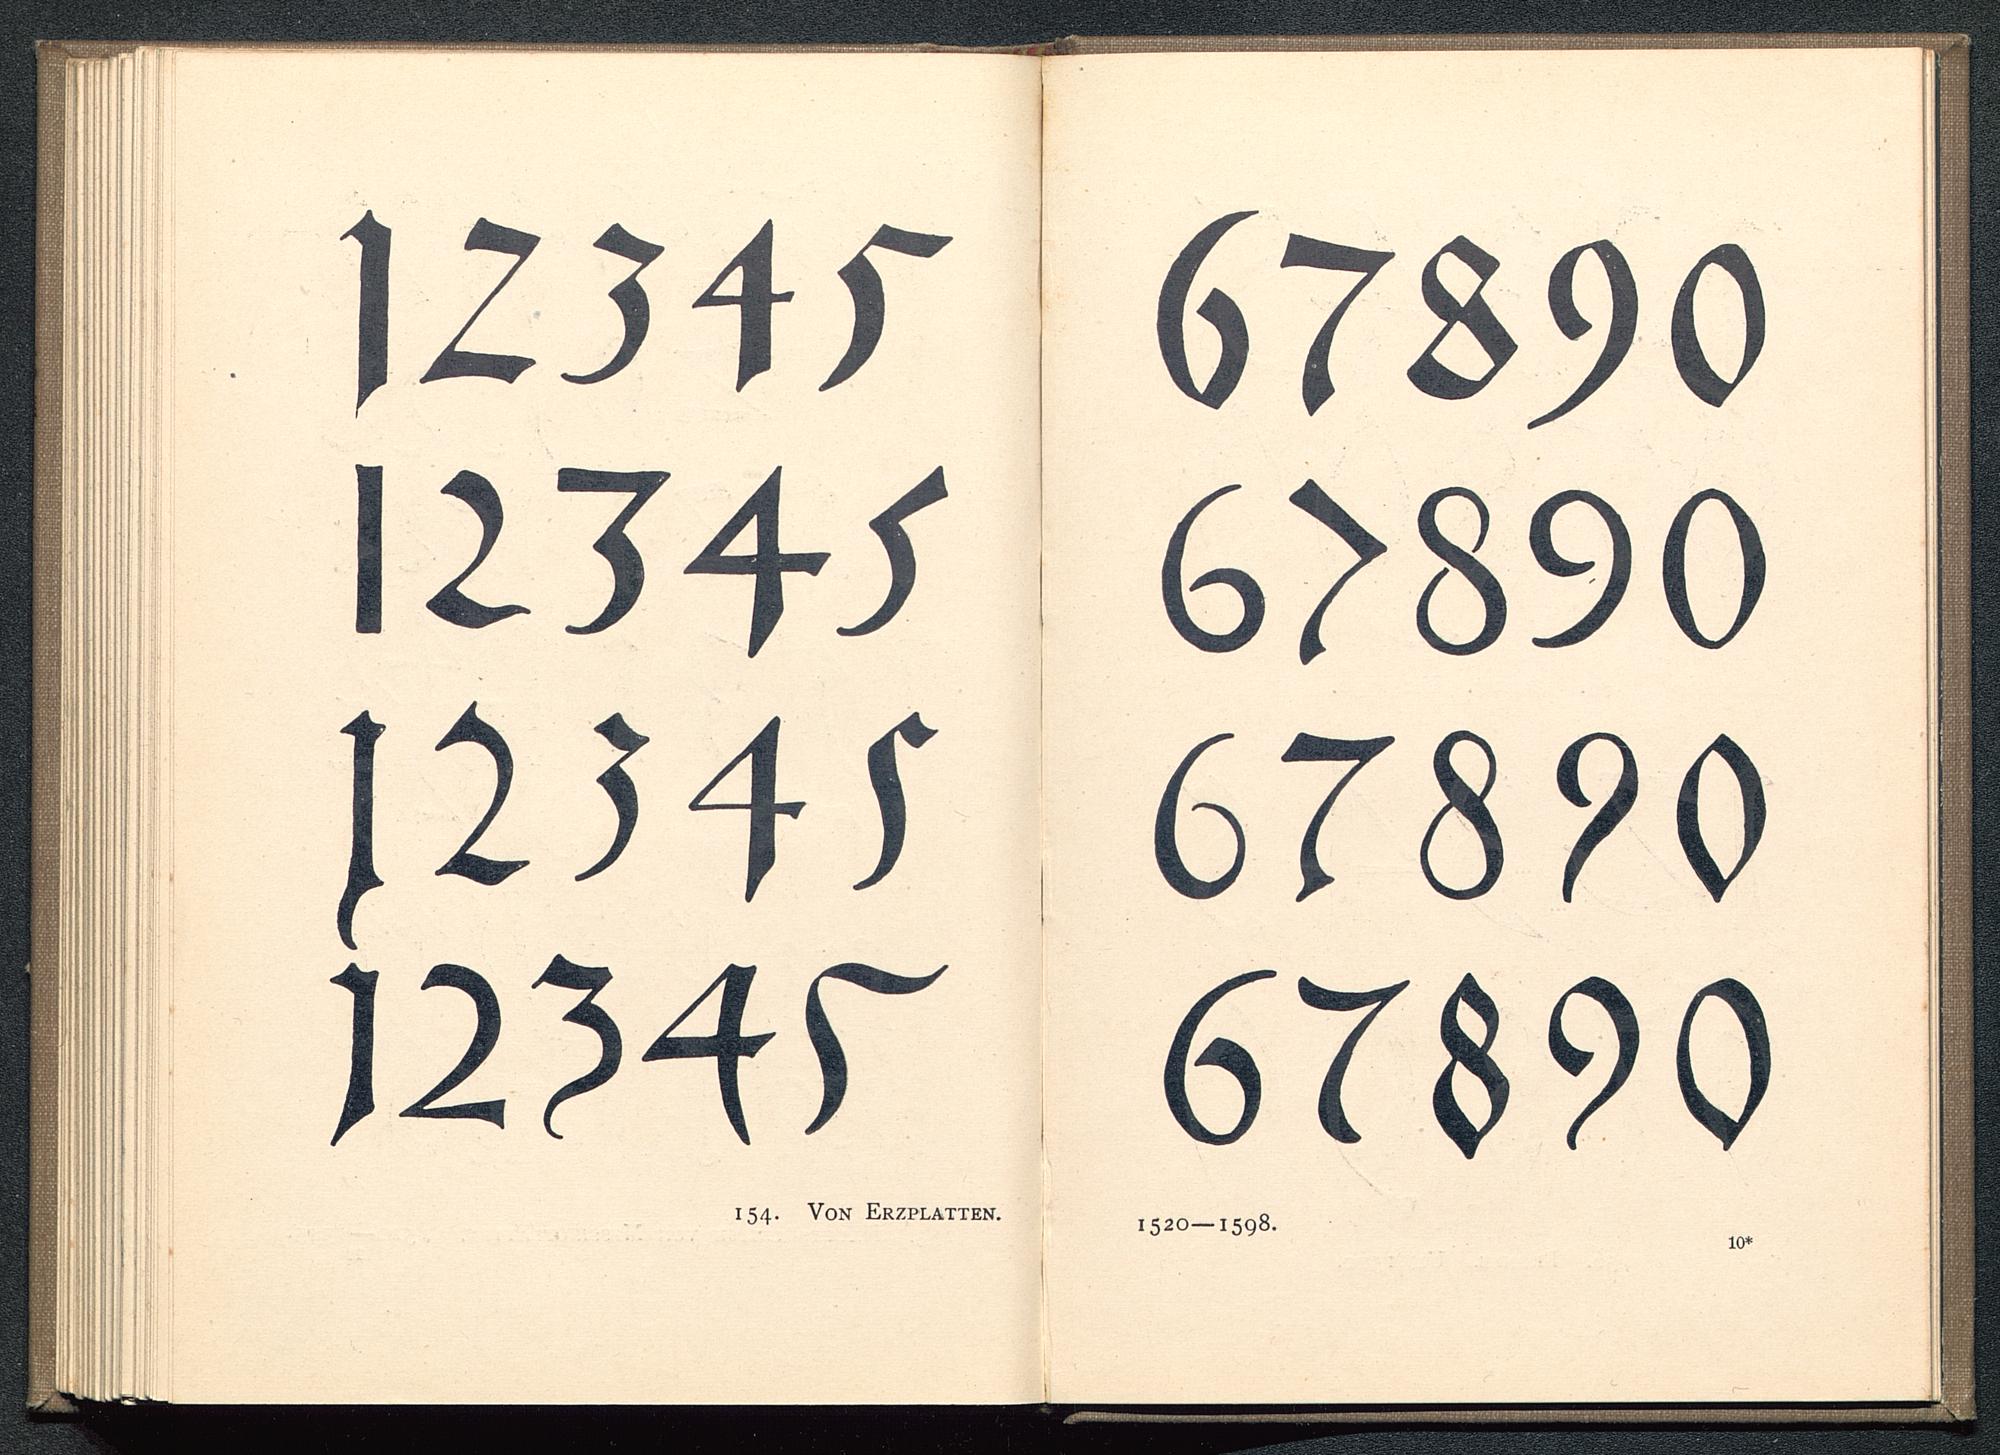 1 2 3 4 5
1 2 3 4 5
1 2 3 4 5
1 2 3 4 5
154. Von Erzplatten.
6 7 8 9 0
6 7 8 9 0
6 7 8 9 0
6 7 8 9 0
1520—1598.
10*